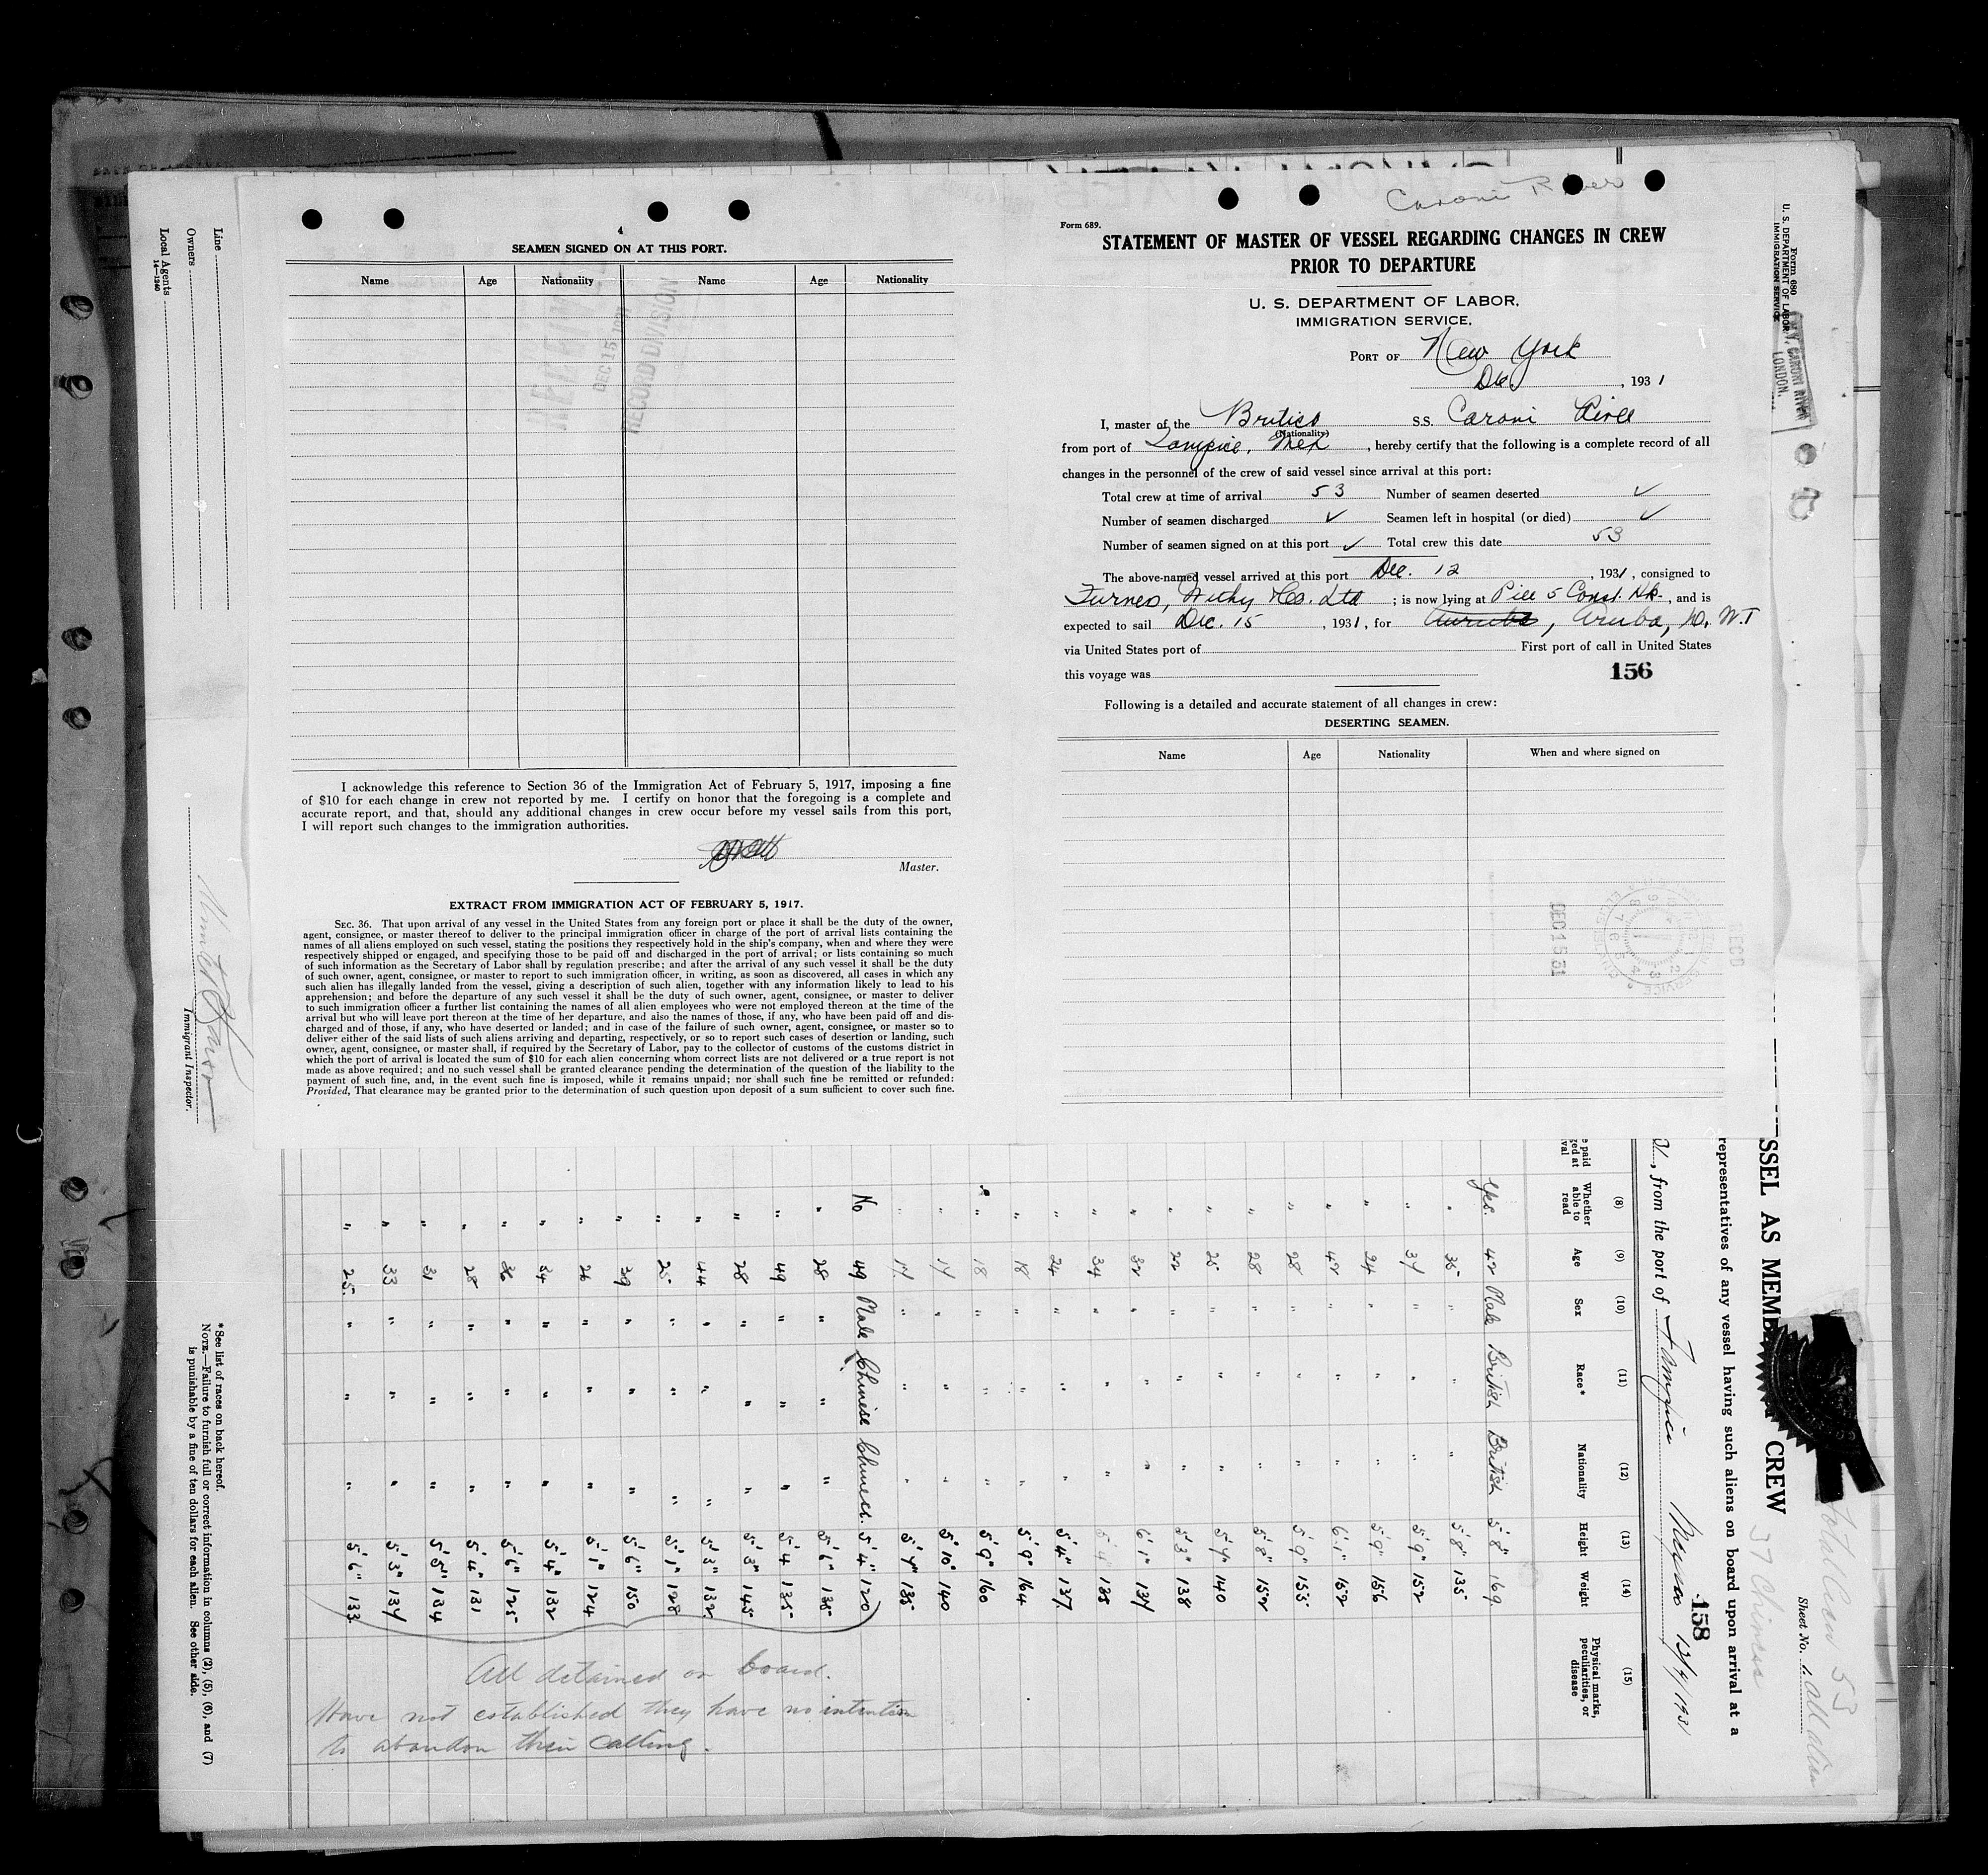 Caroni River
4
SEAMEN SIGNED ON AT THIS PORT.
Name Age Nationality Name Age Nationality
DEC 15 1931
RECORD DIVISION
I acknowledge this reference to Section 36 of the Immigration Act of February 5, 1917, imposing a fine
of $10 for each change in crew not reported by me. I certify on honor that the foregoing is a complete and
accurate report, and that, should any additional changes in crew occur before my vessel sails from this port,
I will report such changes to the immigration authorities.
Master.
EXTRACT FROM IMMIGRATION ACT OF FEBRUARY 5, 1917.
SEC. 36. That upon arrival of any vessel in the United States from any foreign port or place it shall be the duty of the owner,
agent, consignee, or master thereof to deliver to the principal immigration officer in charge of the port of arrival lists containing the
names of all aliens employed on such vessel, stating the positions they respectively hold in the ship's company, when and where they were
respectively shipped or engaged, and specifying those to be paid off and discharged in the port of arrival; or lists containing so much
of such information as the Secretary of Labor shall by regulation prescribe; and after the arrival of any such vessel it shall be the duty
of such owner, agent, consignee, or master to report to such immigration officer, in writing, as soon as discovered, all cases in which any
such alien has illegally landed from the vessel, giving a description of such alien, together with any information likely to lead to his
apprehension; and before the departure of any such vessel it shall be the duty of such owner, agent, consignee, or master to deliver
to such immigration officer a further list containing the names of all alien employees who were not employed thereon at the time of the
arrival but who will leave port thereon at the time of her departure, and also the names of those, if any, who have been paid off and dis-
charged and of those, if any, who have deserted or landed; and in case of the failure of such owner, agent, consignee, or master so to
deliver either of the said lists of such aliens arriving and departing, respectively, or so to report such cases of desertion or landing, such
owner, agent, consignee, or master shall, if required by the Secretary of Labor, pay to the collector of customs of the customs district in
which the port of arrival is located the sum of $10 for each alien concerning whom correct lists are not delivered or a true report is not
made as above required; and no such vessel shall be granted clearance pending the determination of the question of the liability to the
payment of such fine, and, in the event such fine is imposed, while it remains unpaid; nor shall such fine be remitted or refunded:
Provided, That clearance may be granted prior to the determination of such question upon deposit of a sum sufficient to cover such fine.
Form 689.
STATEMENT OF MASTER OF VESSEL REGARDING CHANGES IN CREW
PRIOR TO DEPARTURE
U. S. DEPARTMENT OF LABOR,
IMMIGRATION SERVICE,
PORT OF New York
Dec , 1931
I, master of the British S.S. Caroni River
(Nationality)
from port of Tampico, Mex , hereby certify that the following is a complete record of all
changes in the personnel of the crew of said vessel since arrival at this port:
Total crew at time of arrival 53 Number of seamen deserted ✓
Number of seamen discharged ✓ Seamen left in hospital (or died) ✓
Number of seamen signed on at this port ✓ Total crew this date 53
The above-named vessel arrived at this port Dec. 12 , 1931, consigned to
Furness, Withy & Co. Ltd ; is now lying at Pier 5 Const. Hk. , and is
expected to sail Dec. 15 , 1931, for Auruba, Aruba, D. W. I
via United States port of First port of call in United States
this voyage was 156
Following is a detailed and accurate statement of all changes in crew:
DESERTING SEAMEN.
Name Age Nationality When and where signed on
DEC 15 31
Line
Owners
Local Agents
14—1240
Immigrant Inspector.
*See list of races on back hereof.
NOTE.—Failure to furnish full or correct information in columns (2), (5), (6), and (7)
is punishable by a fine of ten dollars for each alien. See other side.
Form 680
U. S. DEPARTMENT OF LABOR
IMMIGRATION SERVICE
M.V. CARONI RIVER
LONDON.
Total Crew 53
Sheet No. 1. All alien
SSEL AS MEMB CREW
37 Chinese
representatives of any vessel having such aliens on board upon arrival at a
, from the port of Tampico Mexico 158
(8) (9) (10) (11) (12) (13) (14) (15)
Whether able to read Age Sex Race* Nationality Height Weight Physical marks, peculiarities, or disease
Yes. 42 Male British British 5' 8" 169
" 35 " " " 5' 8" 135
" 37 " " " 5' 9" 152
" 24 " " " 5' 9" 156
" 42 " " " 6' 1" 152
" 28 " " " 5' 9" 155
" 28 " " " 5' 8" 152
" 25 " " " 5' 7" 140
" 22 " " " 5' 3" 138
" 32 " " " 6' 1" 137
" 34 " " " 135
" 24 " " " 5' 4" 137
" 18 " " " 5' 9" 164
" 18 " " " 5' 9" 160
" 17 " " " 5' 10" 140
" 17 " " " 5' 7" 135
No 49 Male Chinese Chinese. 5' 4" 120
" 28 " " " 5' 6" 135
" 49 " " " 5' 4 135
" 28 " " " 5' 3" 145
" 44 " " " 5' 3" 132
" 25 " " " 5' 1" 128
" 39 " " " 5' 6" 150
" 26 " " " 5' 1" 124
" 34 " " " 5' 4" 132
" 36 " " " 5' 6" 125
" 28 " " " 5' 4" 131
" 31 " " " 5' 5" 134
" 33 " " " 5' 3" 137
" 25 " " " 5' 6" 133
All detained on board.
Have not established they have no intention
to abandon their calling.